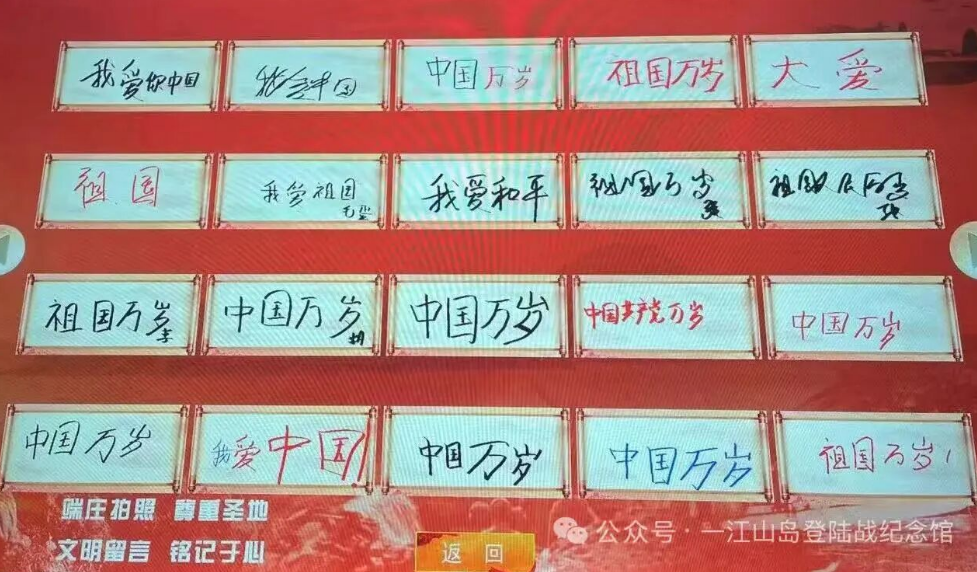 我爱你中国
我爱中国
中国万岁
祖国万岁
大爱
祖国
我爱祖国
我爱和平
祖国万岁
祖国
祖国万岁
李
中国万岁
胡
中国万岁
中国共产党万岁
中国万岁
中国万岁
我爱中国!
中国万岁
中国万岁
祖国万岁!
端庄拍照 尊重圣地
文明留言 铭记于心
返回
公众号·一江山岛登陆战纪念馆